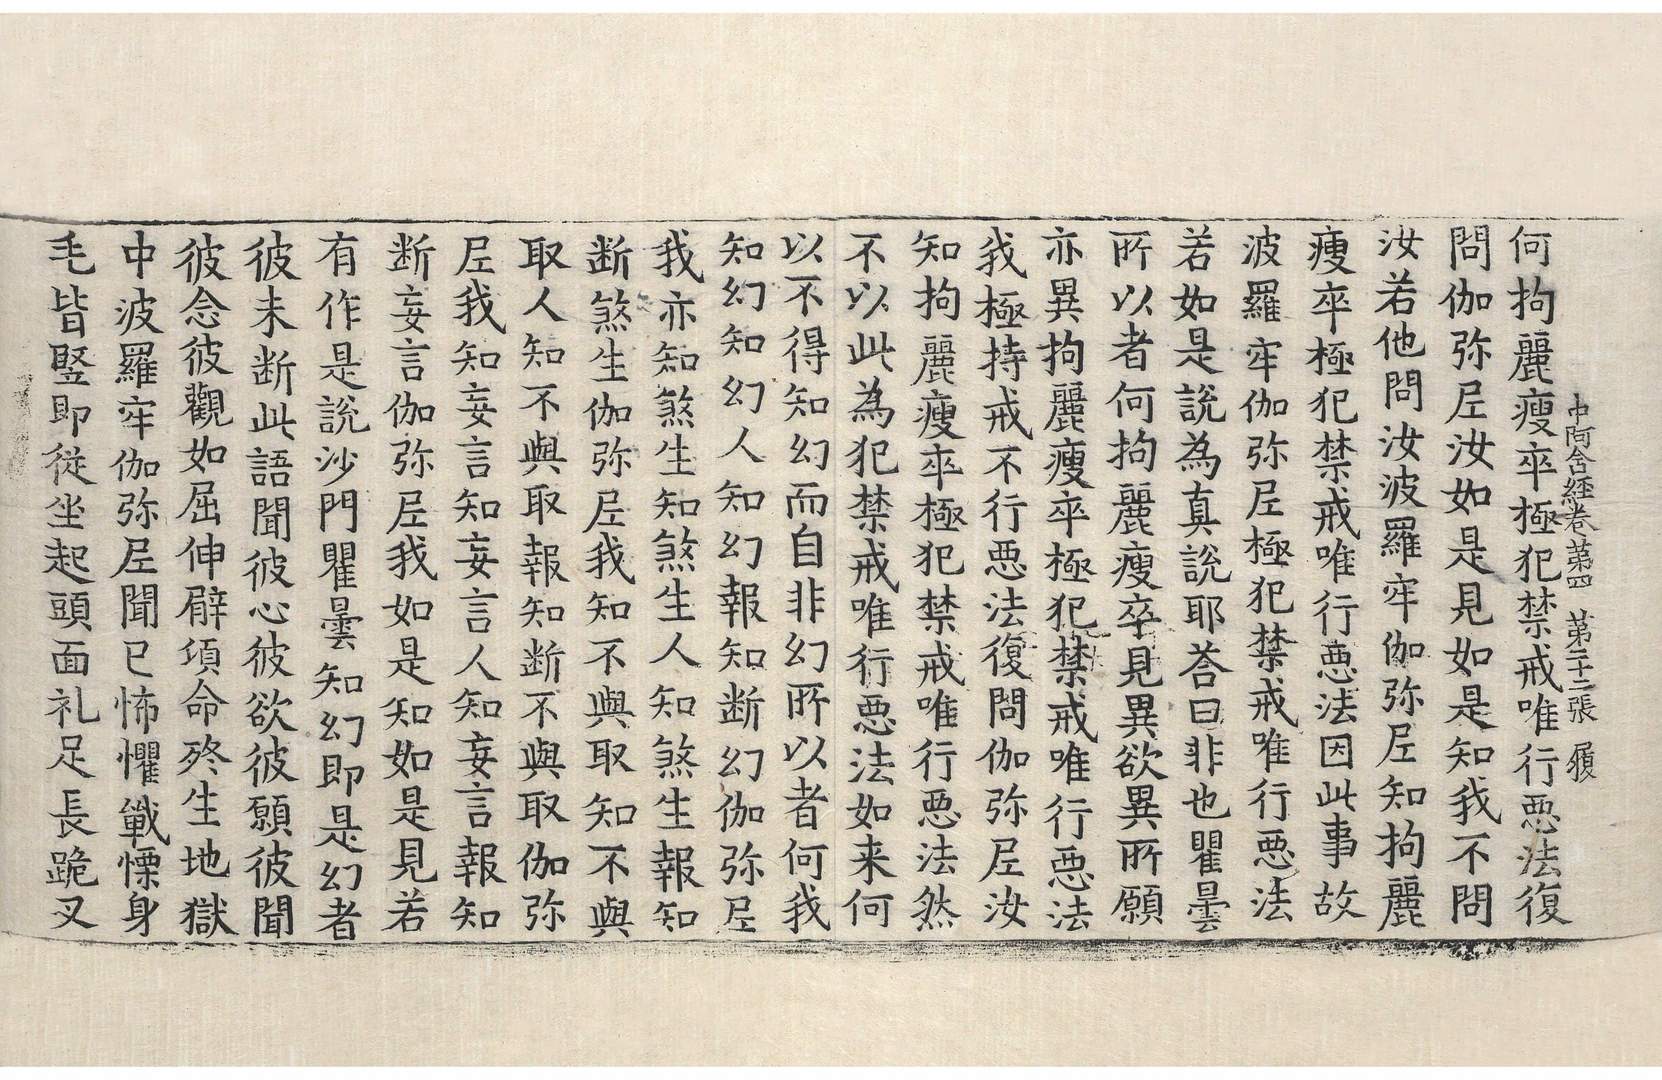 中阿含経卷第四 第二十二張 履
何拘麗瘦卒極犯禁戒唯行悪法復
問伽弥尼汝如是見如是知我不問
汝若他問汝波羅牢伽弥尼知拘麗
瘦卒極犯禁戒唯行悪法因此事故
波羅牢伽弥尼極犯禁戒唯行悪法
若如是說為真說耶荅曰非也瞿曇
所以者何拘麗瘦卒見異欲異所願
亦異拘麗瘦卒極犯禁戒唯行悪法
我極持戒不行悪法復問伽弥尼汝
知拘麗瘦卒極犯禁戒唯行悪法然
不以此為犯禁戒唯行悪法如来何
以不得知幻而自非幻所以者何我
知幻知幻人知幻報知断幻伽弥尼
我亦知煞生知煞生人知煞生報知
断煞生伽弥尼我知不與取知不與
取人知不與取報知断不與取伽弥
尼我知妄言知妄言人知妄言報知
断妄言伽弥尼我如是知如是見若
有作是說沙門瞿曇知幻即是幻者
彼未断此語聞彼心彼欲彼願彼聞
彼念彼觀如屈伸臂頃命終生地獄
中波羅牢伽弥尼聞已怖懼戰慄身
毛皆竪即従坐起頭面礼足長跪叉